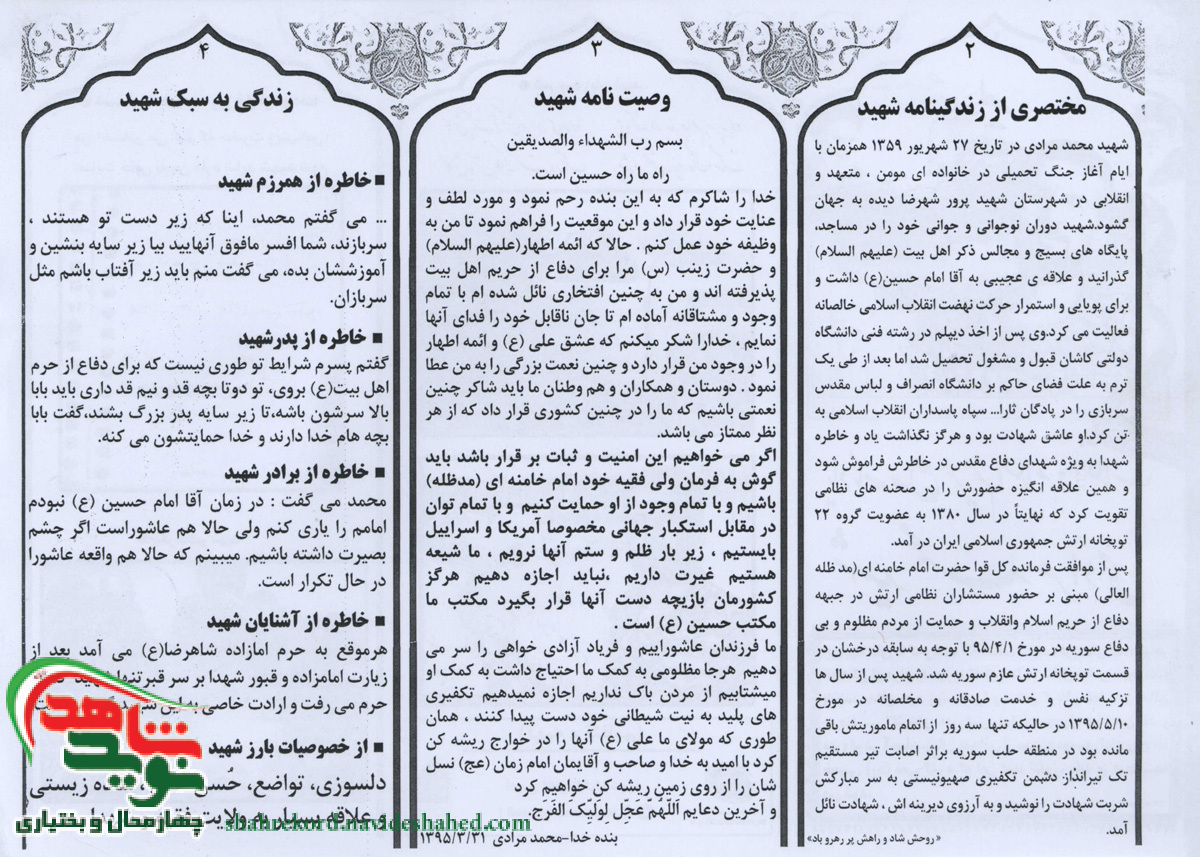 ۲
مختصری از زندگینامه شهید
شهید محمد مرادی در تاریخ ۲۷ شهریور ۱۳۵۹ همزمان با
ایام آغاز جنگ تحمیلی در خانواده ای مومن ، متعهد و
انقلابی در شهرستان شهید پرور شهرضا دیده به جهان
گشود.شهید دوران نوجوانی و جوانی خود را در مساجد،
پایگاه های بسیج و مجالس ذکر اهل بیت (علیهم السلام)
گذرانید و علاقه ی عجیبی به آقا امام حسین(ع) داشت و
برای پویایی و استمرار حرکت نهضت انقلاب اسلامی خالصانه
فعالیت می کرد.وی پس از اخذ دیپلم در رشته فنی دانشگاه
دولتی کاشان قبول و مشغول تحصیل شد اما بعد از طی یک
ترم به علت فضای حاکم بر دانشگاه انصراف و لباس مقدس
سربازی را در پادگان ثارا... سپاه پاسداران انقلاب اسلامی به
تن کرد.او عاشق شهادت بود و هرگز نگذاشت یاد و خاطره
شهدا به ویژه شهدای دفاع مقدس در خاطرش فراموش شود
و همین علاقه انگیزه حضورش را در صحنه های نظامی
تقویت کرد که نهایتاً در سال ۱۳۸۰ به عضویت گروه ۲۲
توپخانه ارتش جمهوری اسلامی ایران در آمد.
پس از موافقت فرمانده کل قوا حضرت امام خامنه ای(مد ظله
العالی) مبنی بر حضور مستشاران نظامی ارتش در جبهه
دفاع از حریم اسلام وانقلاب و حمایت از مردم مظلوم و بی
دفاع سوریه در مورخ ۹۵/۴/۱ با توجه به سابقه درخشان در
قسمت توپخانه ارتش عازم سوریه شد. شهید پس از سال ها
تزکیه نفس و خدمت صادقانه و مخلصانه در مورخ
۱۳۹۵/۵/۱۰ در حالیکه تنها سه روز از اتمام ماموریتش باقی
مانده بود در منطقه حلب سوریه براثر اصابت تیر مستقیم
تک تیرانداز دشمن تکفیری صهیونیستی به سر مبارکش
شربت شهادت را نوشید و به آرزوی دیرینه اش ، شهادت نائل
آمد.
«روحش شاد و راهش پر رهرو باد»
۳
وصیت نامه شهید
بسم رب الشهداء والصدیقین
راه ما راه حسین است.
خدا را شاکرم که به این بنده رحم نمود و مورد لطف و
عنایت خود قرار داد و این موقعیت را فراهم نمود تا من به
وظیفه خود عمل کنم . حالا که ائمه اطهار(علیهم السلام)
و حضرت زینب (س) مرا برای دفاع از حریم اهل بیت
پذیرفته اند و من به چنین افتخاری نائل شده ام با تمام
وجود و مشتاقانه آماده ام تا جان ناقابل خود را فدای آنها
نمایم ، خدارا شکر میکنم که عشق علی (ع) و ائمه اطهار
را در وجود من قرار دارد و چنین نعمت بزرگی را به من عطا
نمود . دوستان و همکاران و هم وطنان ما باید شاکر چنین
نعمتی باشیم که ما را در چنین کشوری قرار داد که از هر
نظر ممتاز می باشد.
اگر می خواهیم این امنیت و ثبات بر قرار باشد باید
گوش به فرمان ولی فقیه خود امام خامنه ای (مدظله)
باشیم و با تمام وجود از او حمایت کنیم و با تمام توان
در مقابل استکبار جهانی مخصوصا آمریکا و اسراییل
بایستیم ، زیر بار ظلم و ستم آنها نرویم ، ما شیعه
هستیم غیرت داریم ،نباید اجازه دهیم هرگز
کشورمان بازیچه دست آنها قرار بگیرد مکتب ما
مکتب حسین (ع) است .
ما فرزندان عاشوراییم و فریاد آزادی خواهی را سر می
دهیم هرجا مظلومی به کمک ما احتیاج داشت به کمک او
میشتابیم از مردن باک نداریم اجازه نمیدهیم تکفیری
های پلید به نیت شیطانی خود دست پیدا کنند ، همان
طوری که مولای ما علی (ع) آنها را در خوارج ریشه کن
کرد با امید به خدا و صاحب و آقایمان امام زمان (عج) نسل
شان را از روی زمین ریشه کن خواهیم کرد
و آخرین دعایم اَللّهُمَّ عَجِّل لِوَلیِّکَ الفَرَج.
بنده خدا-محمد مرادی ۱۳۹۵/۳/۳۱
۴
زندگی به سبک شهید
■ خاطره از همرزم شهید
... می گفتم محمد، اینا که زیر دست تو هستند ،
سربازند، شما افسر مافوق آنهایید بیا زیر سایه بنشین و
آموزششان بده، می گفت منم باید زیر آفتاب باشم مثل
سربازان.
■ خاطره از پدرشهید
گفتم پسرم شرایط تو طوری نیست که برای دفاع از حرم
اهل بیت(ع) بروی، تو دوتا بچه قد و نیم قد داری باید بابا
بالا سرشون باشه،تا زیر سایه پدر بزرگ بشند،گفت بابا
بچه هام خدا دارند و خدا حمایتشون می کنه.
■ خاطره از برادر شهید
محمد می گفت : در زمان آقا امام حسین (ع) نبودم
امامم را یاری کنم ولی حالا هم عاشوراست اگر چشم
بصیرت داشته باشیم. میبینم که حالا هم واقعه عاشورا
در حال تکرار است.
■ خاطره از آشنایان شهید
هرموقع به حرم امازاده شاهرضا(ع) می آمد بعد از
زیارت امامزاده و قبور شهدا بر سر قبرتنها شهید
حرم می رفت و ارادت خاصی به این
■ از خصوصیات بارز شهید
دلسوزی، تواضع، حُسن زیستی
و علاقه بسیار به ولایت
نوید شاهد
چهارمحال و بختیاری
shahrekord.navideshahed.com